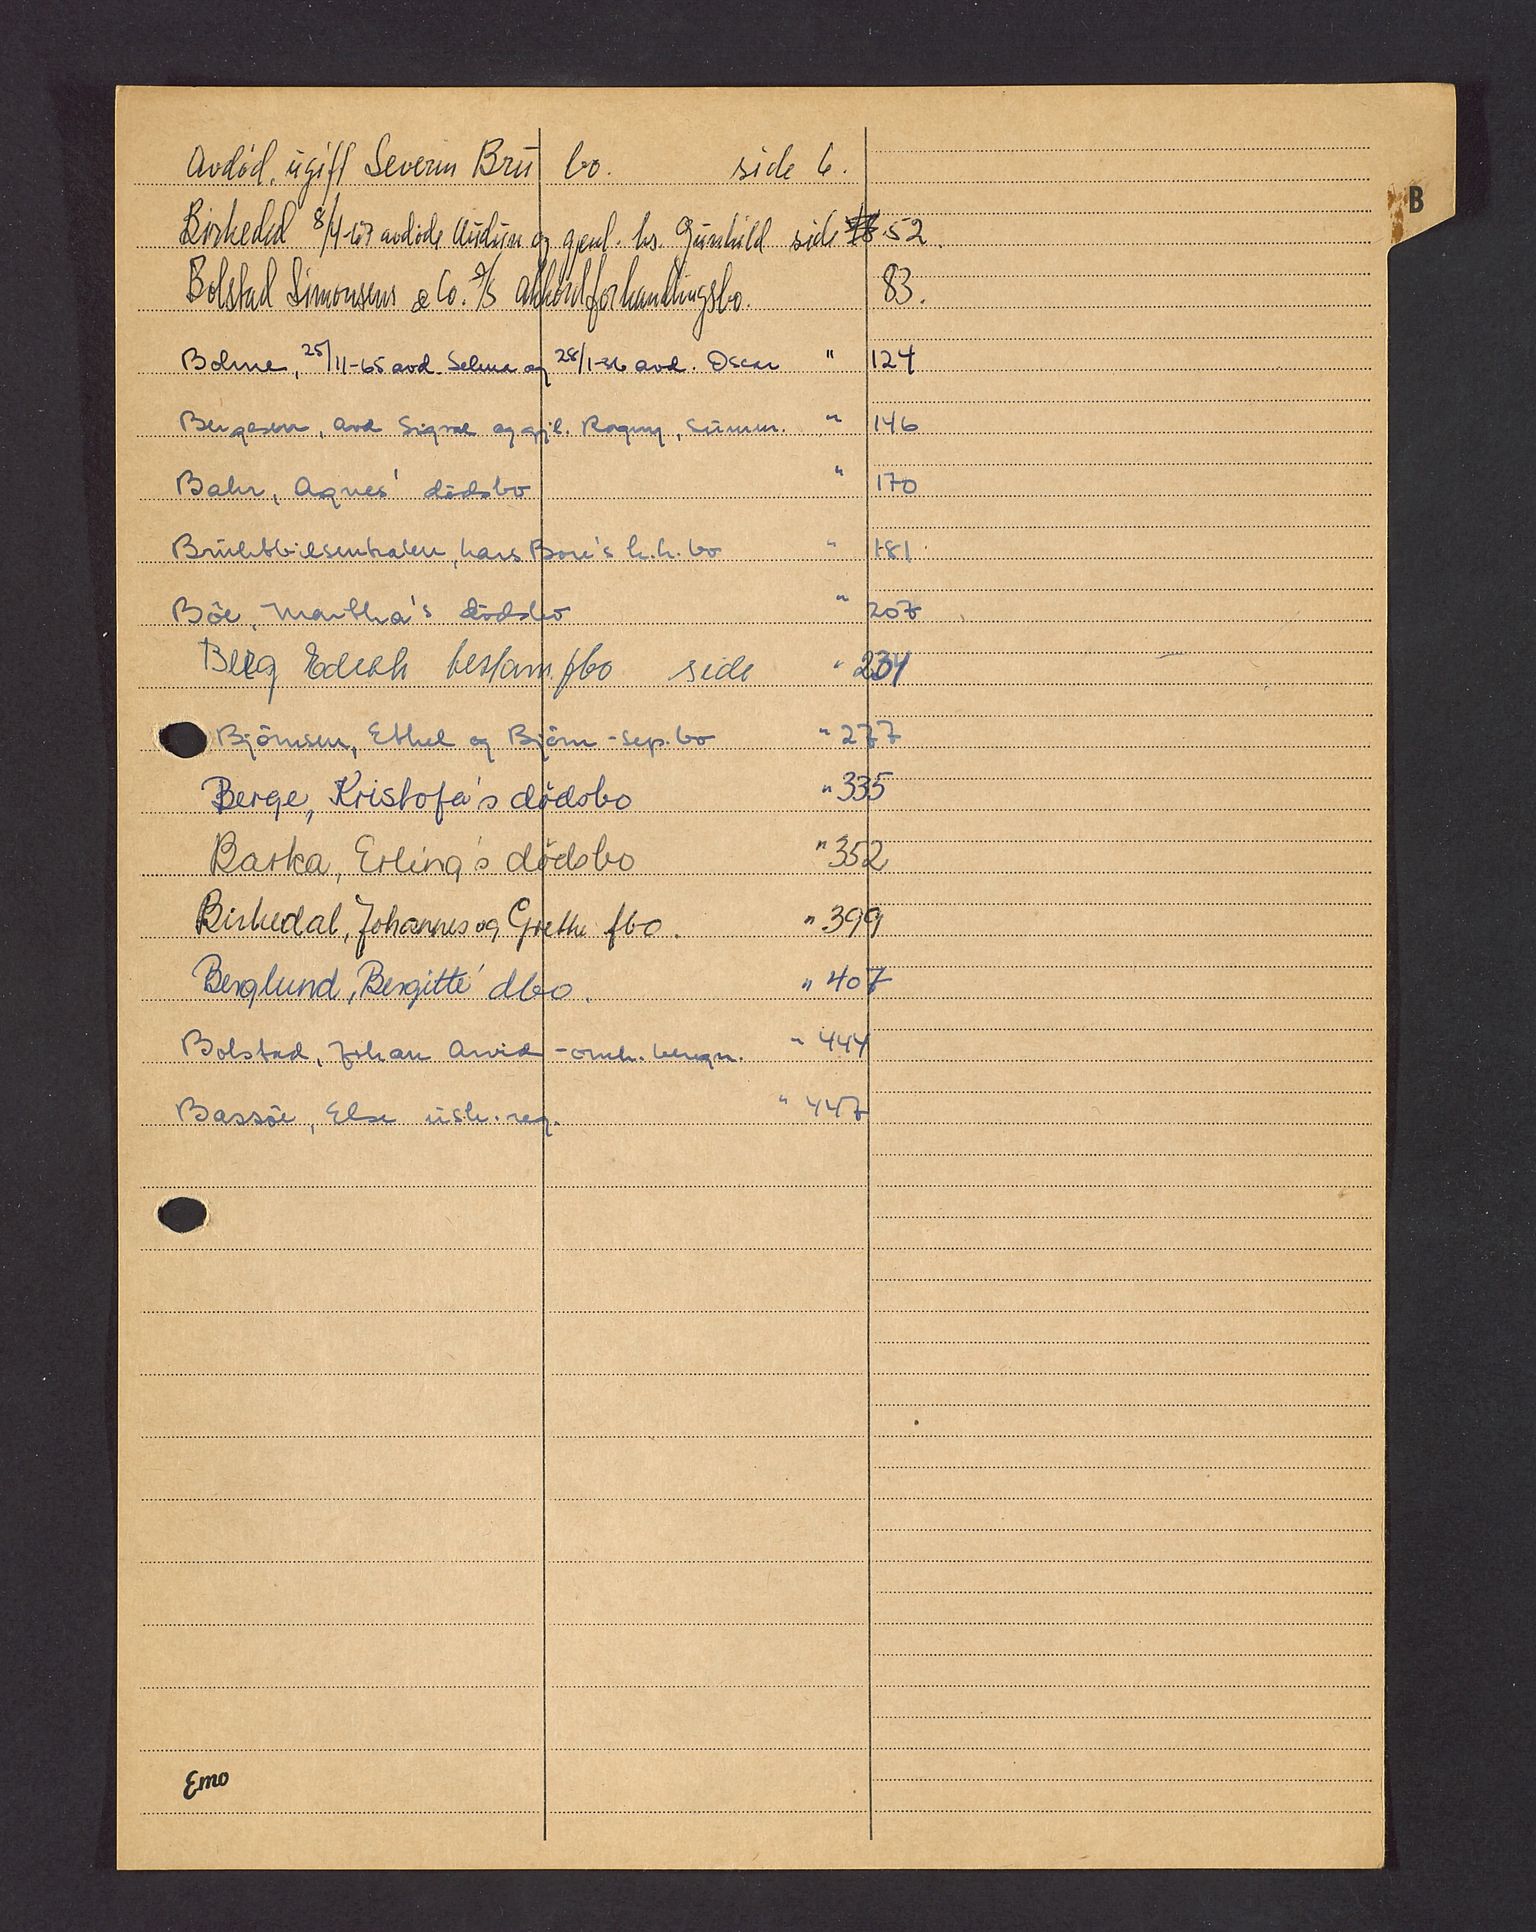 B
Avdöd, ügift Severin Brü bo. side 6.
Birkedal 8/4-67 avdöde Aüdün og gjenl. hs. Günhild side 52.
Bolstad Simonsens & Co. A/S akkordforhandlingsbo. 83.
Bolme, 25/11-65 avd. Selma og 28/1-36 avd. Oscar " 124
Bergesen, avd Sigval og gjl. Ragny, sümm. " 146
Bahr, Agnes' dödsbo " 170
Brüktbilsentralen, Lars Bore's k.k. bo " 181
Böe, Martha's dödsbo " 207
Berg Edith testam. fbo side " 234
Björnsen, Ethel og Björn - sep. bo " 277
Berge, Kristofa's dödsbo " 335
Barka, Erling's dödsbo " 352
Birkedal, Johannes og Grethe fbo. " 399
Berglund, Bergitte' dbo. " 407
Bolstad, Johan Arvid - omk. beregn. " 444
Bassöe, Else üsk. reg. " 447
Emo